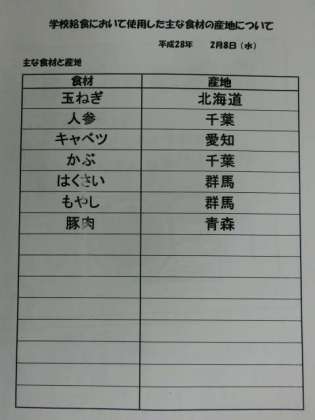 学校給食において使用した主な食材の産地について
平成28年 2月8日（水）
主な食材と産地
食材 産地
玉ねぎ 北海道
人参 千葉
キャベツ 愛知
かぶ 千葉
はくさい 群馬
もやし 群馬
豚肉 青森